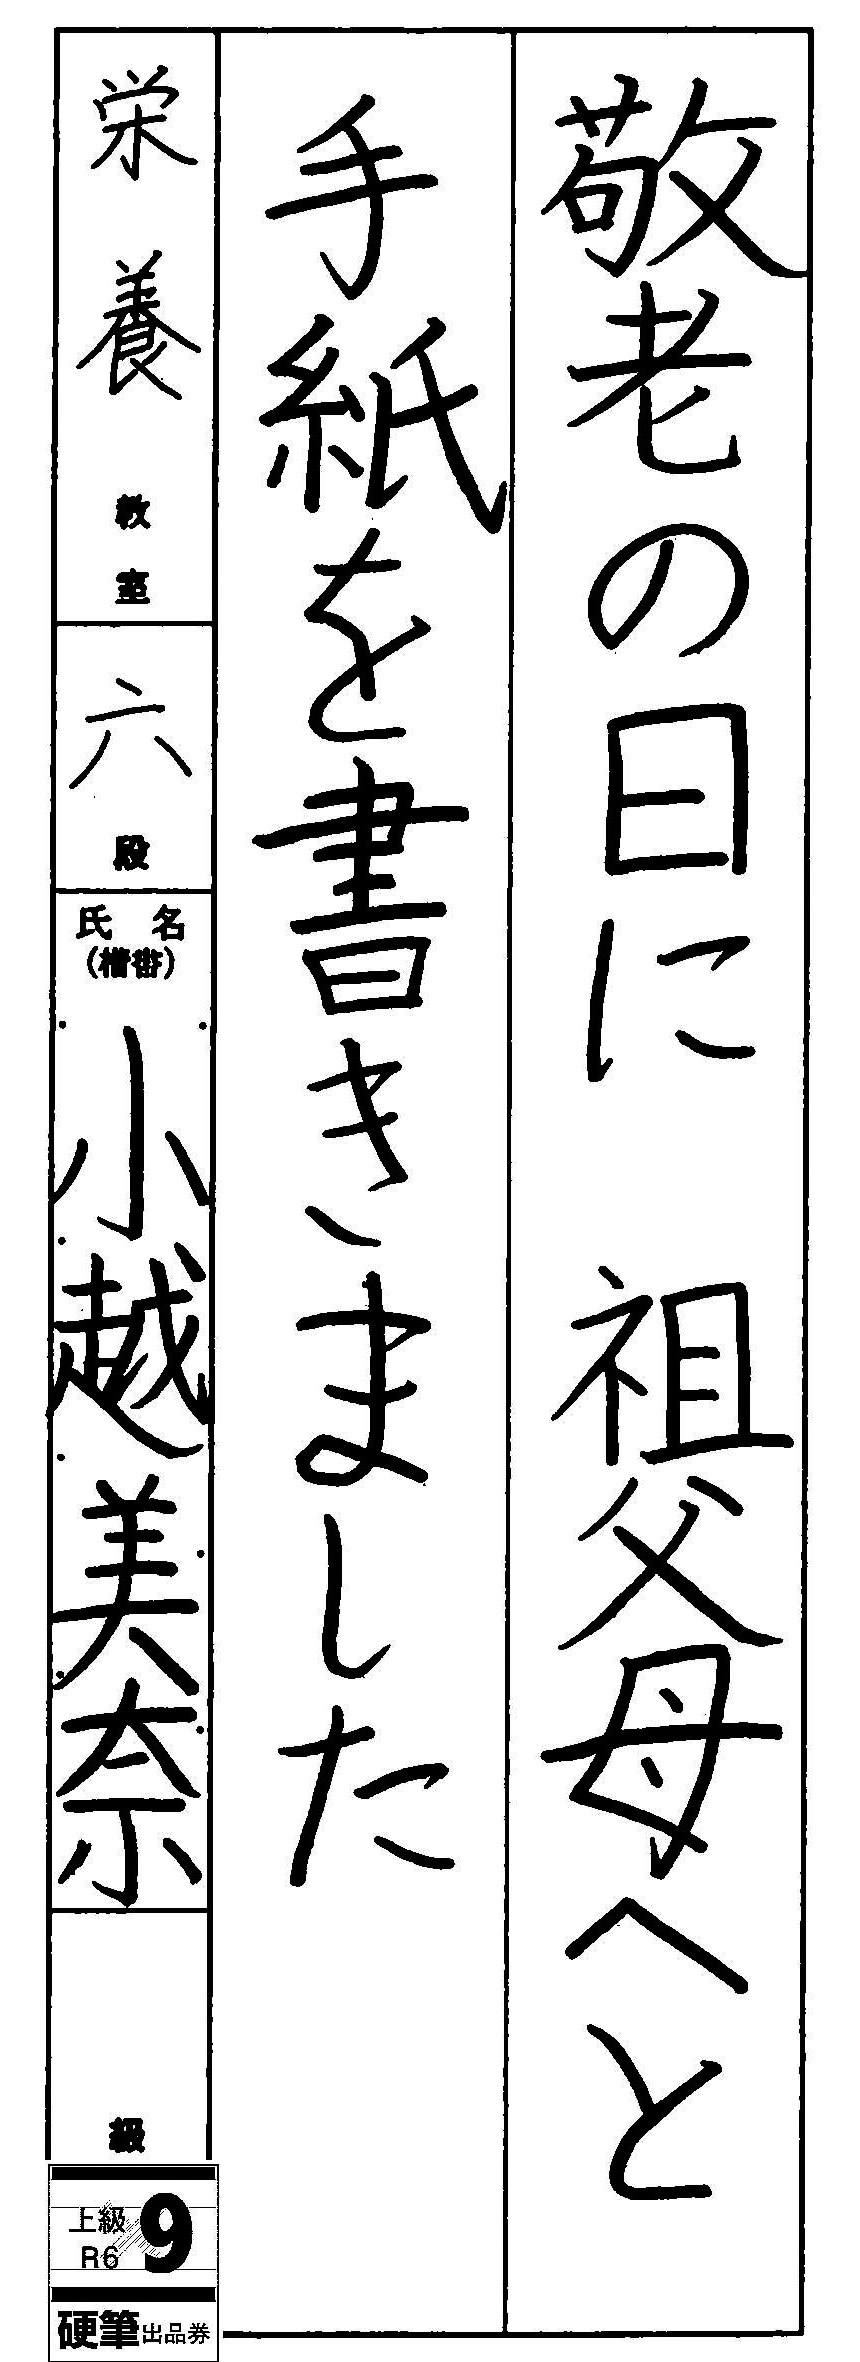 敬老の日に　祖父母へと
手紙を書きました
栄養教室
六段
氏名
(楷書)
小越美奈
級
上級
R6
9
硬筆出品券